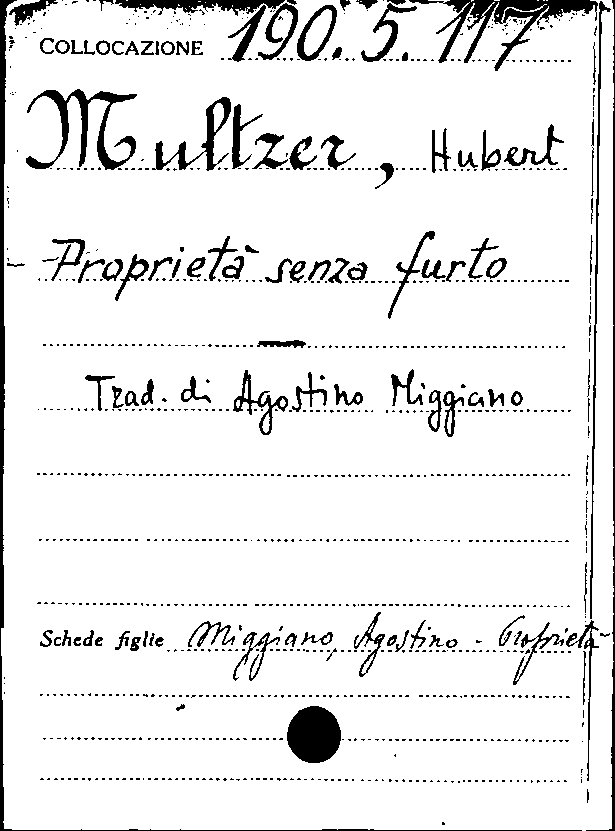 COLLOCAZIONE 190.5.117
Multzer, Hubert
Proprietà senza furto
Trad. di Agostino Miggiano
Schede figlie Miggiano, Agostino - Proprietà